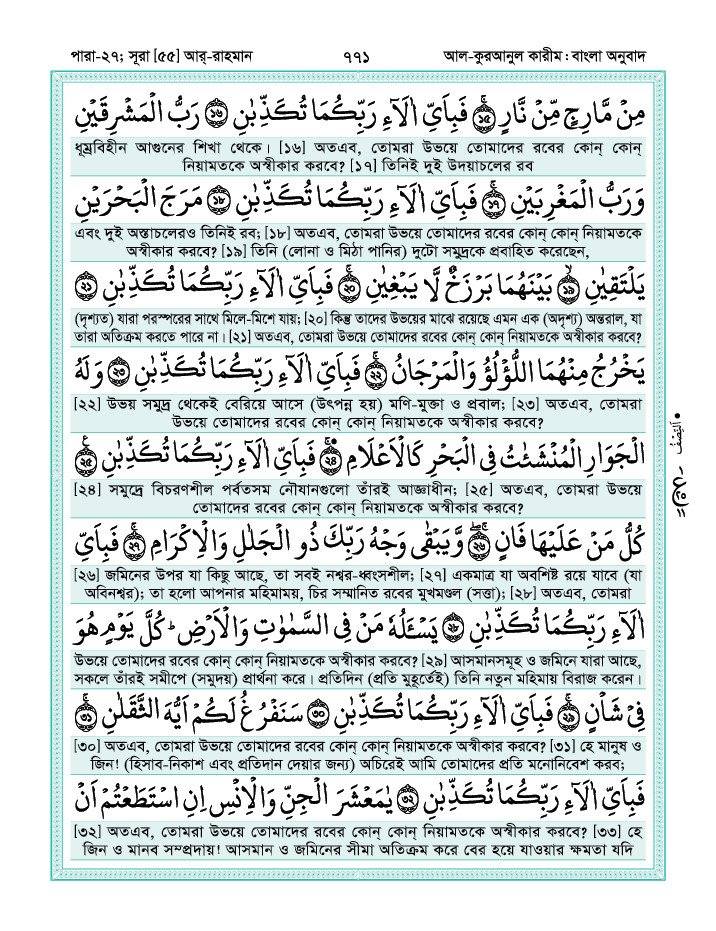 পারা-২৭; সূরা [৫৫] আর্-রাহমান ৭৭১ আল-কুরআনুল কারীম : বাংলা অনুবাদ
مِنْ مَّارِجٍ مِّنْ نَّارٍ ۝١٥ فَبِاَيِّ اٰلَآءِ رَبِّكُمَا تُكَذِّبٰنِ ۝١٦ رَبُّ الْمَشْرِقَيْنِ
ধূম্রবিহীন আগুনের শিখা থেকে। [১৬] অতএব, তোমরা উভয়ে তোমাদের রবের কোন্ কোন্
নিয়ামতকে অস্বীকার করবে? [১৭] তিনিই দুই উদয়াচলের রব
وَرَبُّ الْمَغْرِبَيْنِ ۝١٧ فَبِاَيِّ اٰلَآءِ رَبِّكُمَا تُكَذِّبٰنِ ۝١٨ مَرَجَ الْبَحْرَيْنِ
এবং দুই অস্তাচলেরও তিনিই রব; [১৮] অতএব, তোমরা উভয়ে তোমাদের রবের কোন্ কোন্ নিয়ামতকে
অস্বীকার করবে? [১৯] তিনি (লোনা ও মিঠা পানির) দুটো সমুদ্রকে প্রবাহিত করেছেন,
يَلْتَقِيٰنِ ۝١٩ بَيْنَهُمَا بَرْزَخٌ لَّا يَبْغِيٰنِ ۝٢٠ فَبِاَيِّ اٰلَآءِ رَبِّكُمَا تُكَذِّبٰنِ ۝٢١
(দৃশ্যত) যারা পরস্পরের সাথে মিলে-মিশে যায়; [২০] কিন্তু তাদের উভয়ের মাঝে রয়েছে এমন এক (অদৃশ্য) অন্তরাল, যা
তারা অতিক্রম করতে পারে না। [২১] অতএব, তোমরা উভয়ে তোমাদের রবের কোন্ কোন্ নিয়ামতকে অস্বীকার করবে?
يَخْرُجُ مِنْهُمَا اللُّؤْلُؤُ وَالْمَرْجَانُ ۝٢٢ فَبِاَيِّ اٰلَآءِ رَبِّكُمَا تُكَذِّبٰنِ ۝٢٣ وَلَهُ
[২২] উভয় সমুদ্র থেকেই বেরিয়ে আসে (উৎপন্ন হয়) মণি-মুক্তা ও প্রবাল; [২৩] অতএব, তোমরা
উভয়ে তোমাদের রবের কোন্ কোন্ নিয়ামতকে অস্বীকার করবে?
الْجَوَارِ الْمُنْشَـٰٔتُ فِى الْبَحْرِ كَالْاَعْلَامِ ۝٢٤ فَبِاَيِّ اٰلَآءِ رَبِّكُمَا تُكَذِّبٰنِ ۝٢٥
[২৪] সমুদ্রে বিচরণশীল পর্বতসম নৌযানগুলো তাঁরই আজ্ঞাধীন; [২৫] অতএব, তোমরা উভয়ে
তোমাদের রবের কোন্ কোন্ নিয়ামতকে অস্বীকার করবে?
كُلُّ مَنْ عَلَيْهَا فَانٍ ۝٢٦ وَّيَبْقٰى وَجْهُ رَبِّكَ ذُو الْجَلٰلِ وَالْاِكْرَامِ ۝٢٧ فَبِاَيِّ
[২৬] জমিনের উপর যা কিছু আছে, তা সবই নশ্বর-ধ্বংসশীল; [২৭] একমাত্র যা অবশিষ্ট রয়ে যাবে (যা
অবিনশ্বর); তা হলো আপনার মহিমাময়, চির সম্মানিত রবের মুখমণ্ডল (সত্তা); [২৮] অতএব, তোমরা
اٰلَآءِ رَبِّكُمَا تُكَذِّبٰنِ ۝٢٨ يَسْـَٔلُهٗ مَنْ فِى السَّمٰوٰتِ وَالْاَرْضِ ؕ كُلَّ يَوْمٍ هُوَ
উভয়ে তোমাদের রবের কোন্ কোন্ নিয়ামতকে অস্বীকার করবে? [২৯] আসমানসমূহ ও জমিনে যারা আছে,
সকলে তাঁরই সমীপে (সমুদয়) প্রার্থনা করে। প্রতিদিন (প্রতি মুহূর্তেই) তিনি নতুন মহিমায় বিরাজ করেন।
فِىْ شَاْنٍ ۝٢٩ فَبِاَيِّ اٰلَآءِ رَبِّكُمَا تُكَذِّبٰنِ ۝٣٠ سَنَفْرُغُ لَكُمْ اَيُّهَ الثَّقَلٰنِ ۝٣١
[৩০] অতএব, তোমরা উভয়ে তোমাদের রবের কোন্ কোন্ নিয়ামতকে অস্বীকার করবে? [৩১] হে মানুষ ও
জিন! (হিসাব-নিকাশ এবং প্রতিদান দেয়ার জন্য) অচিরেই আমি তোমাদের প্রতি মনোনিবেশ করব;
فَبِاَيِّ اٰلَآءِ رَبِّكُمَا تُكَذِّبٰنِ ۝٣٢ يٰمَعْشَرَ الْجِنِّ وَالْاِنْسِ اِنِ اسْتَطَعْتُمْ اَنْ
[৩২] অতএব, তোমরা উভয়ে তোমাদের রবের কোন্ কোন্ নিয়ামতকে অস্বীকার করবে? [৩৩] হে
জিন ও মানব সম্প্রদায়! আসমান ও জমিনের সীমা অতিক্রম করে বের হয়ে যাওয়ার ক্ষমতা যদি
اَلنِّصْفُ